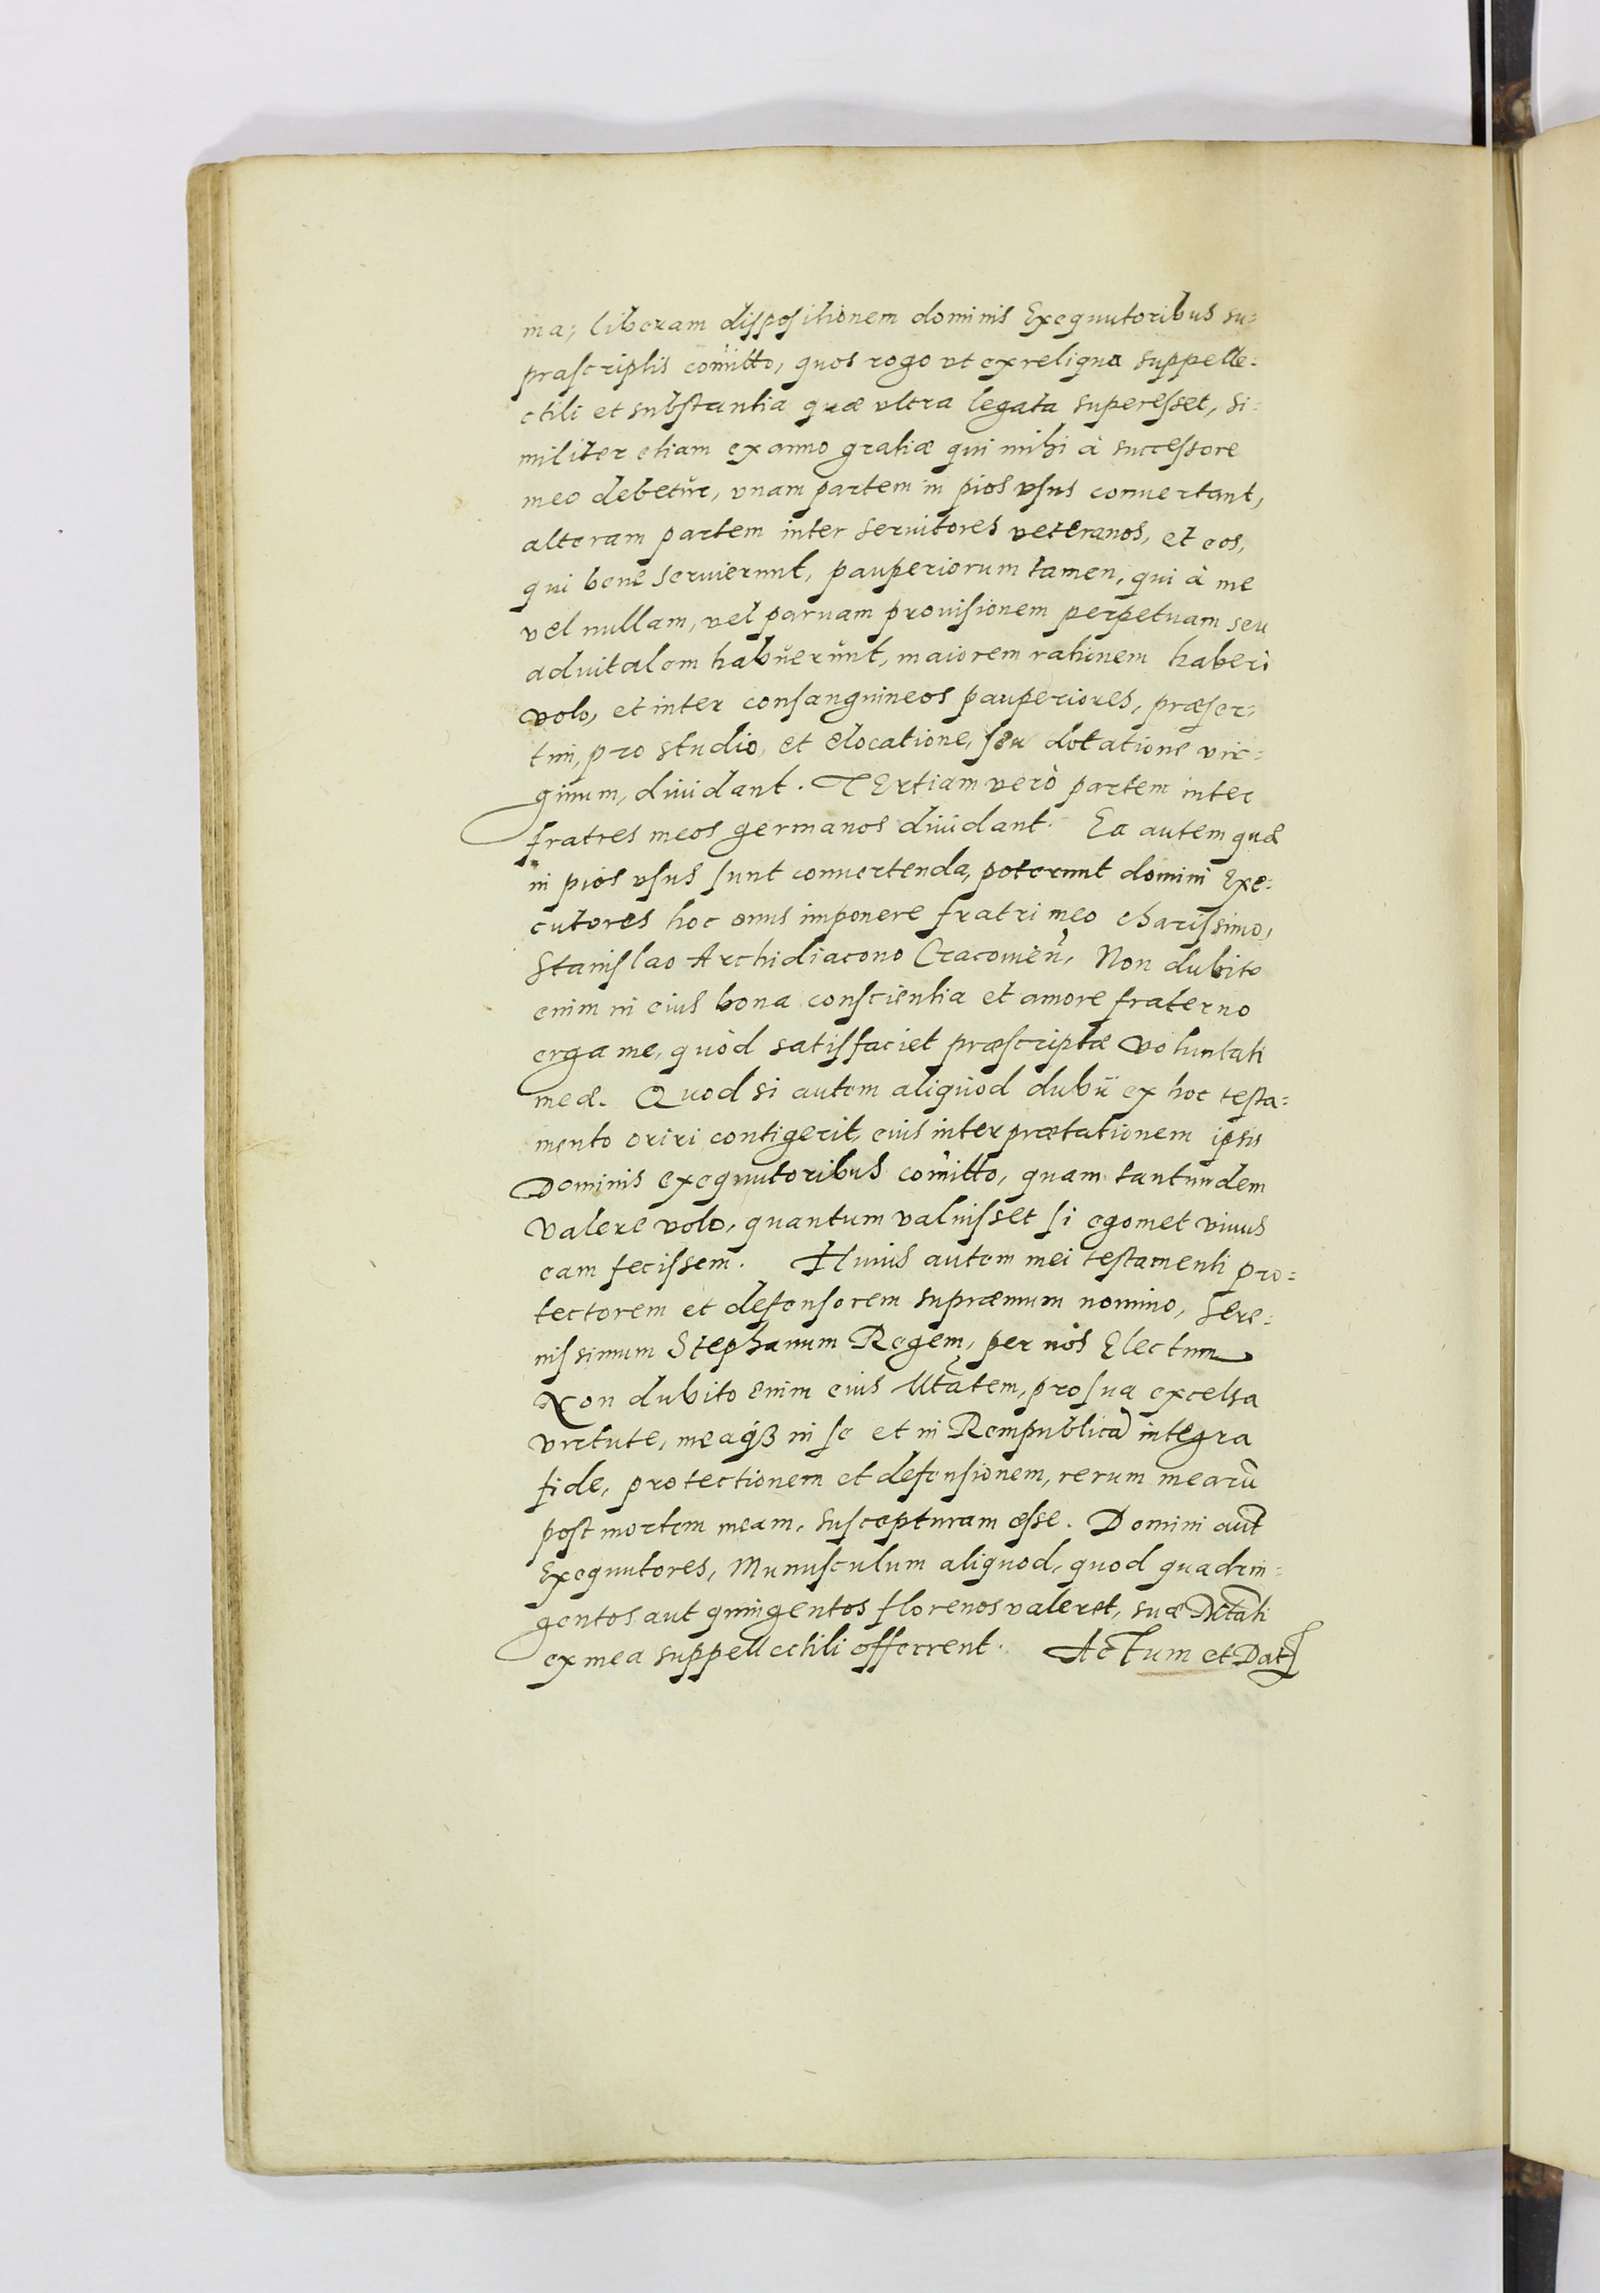 ma, liberam dispositionem dominis Exequutoribus su=
prascriptis com̃itto, quos rogo vt ex reliqua suppelle=
ctili et substantia quæ vltra legata superesset, si=
militer etiam ex anno gratiæ qui mihi à successore
meo debetur, vnam partem in pios vsus conuertant,
alteram partem inter seruitores veteranos, et eos,
qui bene seruierunt, pauperiorum tamen, qui à me
vel nullam, vel paruam prouisionem perpetuam seu
aduitalem habuerunt, maiorem rationem haberi
volo, et inter consanguineos pauperiores, præser=
tim, pro studio, et elocatione, seu dotatione vir=
ginum, diuidant. Tertiam verò partem inter
fratres meos germanos diuidant. Ea autem quæ
in pios vsus sunt conuertenda, poterunt domini Exe=
cutores hoc onus imponere fratri meo charissimo,
Stanislao Archidiacono Cracouień, Non dubito
enim in eius bona conscientia et amore fraterno
erga me, quòd satisfaciet præscriptæ voluntati
meæ. Quod si autem aliquod dubij ex hoc testa=
mento oriri contigerit, eius interprætationem ipsis
Dominis exequutoribus com̃itto, quam tantundem
valere volo, quantum valuisset si egomet viuus
eam fecissem. Huius autem mei testamenti pro=
tectorem et defensorem supræmum nomino, Sere=
nissimum Stephanum Regem, per nos Electum
Non dubito enim eius Mtãtem, pro sua excelsa
virtute, meaqȝ in se et in Rempublicã integra
fide, protectionem et defensionem, rerum mearũ
post mortem meam, suscepturam esse. Domini aut̃
Exequutores, Munusculum aliquod, quod quadrin=
gentos aut quingentos florenos valeret, suæ Mtãti
ex mea suppellectili offerrent. Actum et Dat